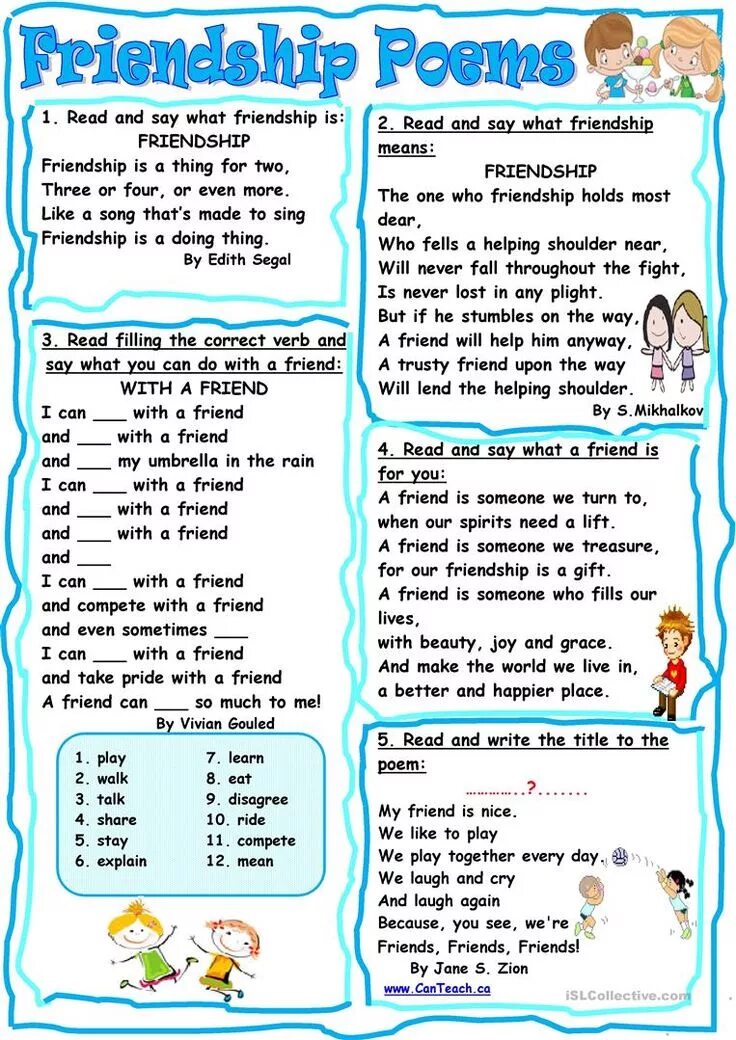 Friendship Poems
1. Read and say what friendship is:
FRIENDSHIP
Friendship is a thing for two,
Three or four, or even more.
Like a song that's made to sing
Friendship is a doing thing.
By Edith Segal
2. Read and say what friendship
means:
FRIENDSHIP
The one who friendship holds most
dear,
Who fells a helping shoulder near,
Will never fall throughout the fight,
Is never lost in any plight.
But if he stumbles on the way,
A friend will help him anyway,
A trusty friend upon the way
Will lend the helping shoulder.
By S.Mikhalkov
3. Read filling the correct verb and
say what you can do with a friend:
WITH A FRIEND
I can ___ with a friend
and ___ with a friend
and ___ my umbrella in the rain
I can ___ with a friend
and ___ with a friend
and ___ with a friend
and ___
I can ___ with a friend
and compete with a friend
and even sometimes ___
I can ___ with a friend
and take pride with a friend
A friend can ___ so much to me!
By Vivian Gouled
1. play
2. walk
3. talk
4. share
5. stay
6. explain
7. learn
8. eat
9. disagree
10. ride
11. compete
12. mean
4. Read and say what a friend is
for you:
A friend is someone we turn to,
when our spirits need a lift.
A friend is someone we treasure,
for our friendship is a gift.
A friend is someone who fills our
lives,
with beauty, joy and grace.
And make the world we live in,
a better and happier place.
5. Read and write the title to the
poem:
…………..?.......
My friend is nice.
We like to play
We play together every day.
We laugh and cry
And laugh again
Because, you see, we're
Friends, Friends, Friends!
By Jane S. Zion
www.CanTeach.ca
iSLCollective.com